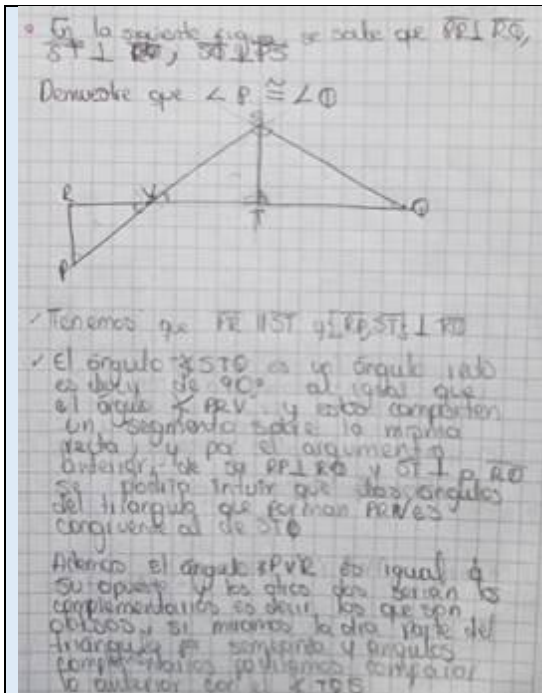 En la siguiente figura se sabe que RP ⊥ RQ,
ST ⊥ RQ, SQ ⊥ PS
Demuestre que ∠P ≅ ∠Q
S
R V T Q
P
✓ Tenemos que PR || ST y RP, ST ⊥ RQ
✓ El ángulo ∡STQ es un ángulo recto
es decir de 90° al igual que
el ángulo ∡ PRV y estos comparten
un segmento sobre la misma
recta, y por el argumento
anterior, de RP ⊥ RQ y ST ⊥ RQ
se podría intuir que los ángulos
del triángulo que forman PRV es
congruente al de STQ
Además el ángulo ∡PVR es igual a
su opuesto y los otros dos serían los
complementarios es decir, los que son
obtusos, si miramos la otra parte del
triángulo y ángulos
complementarios podríamos comparar
lo anterior con el ∡